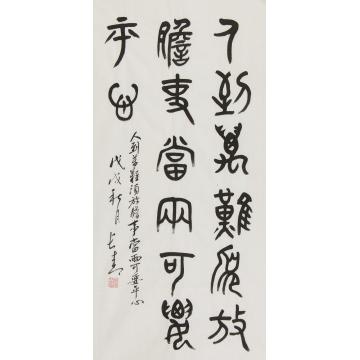 人到萬難須放
膽事當兩可要
平心
人到萬難須放膽事當兩可要平心
戊戌秋月